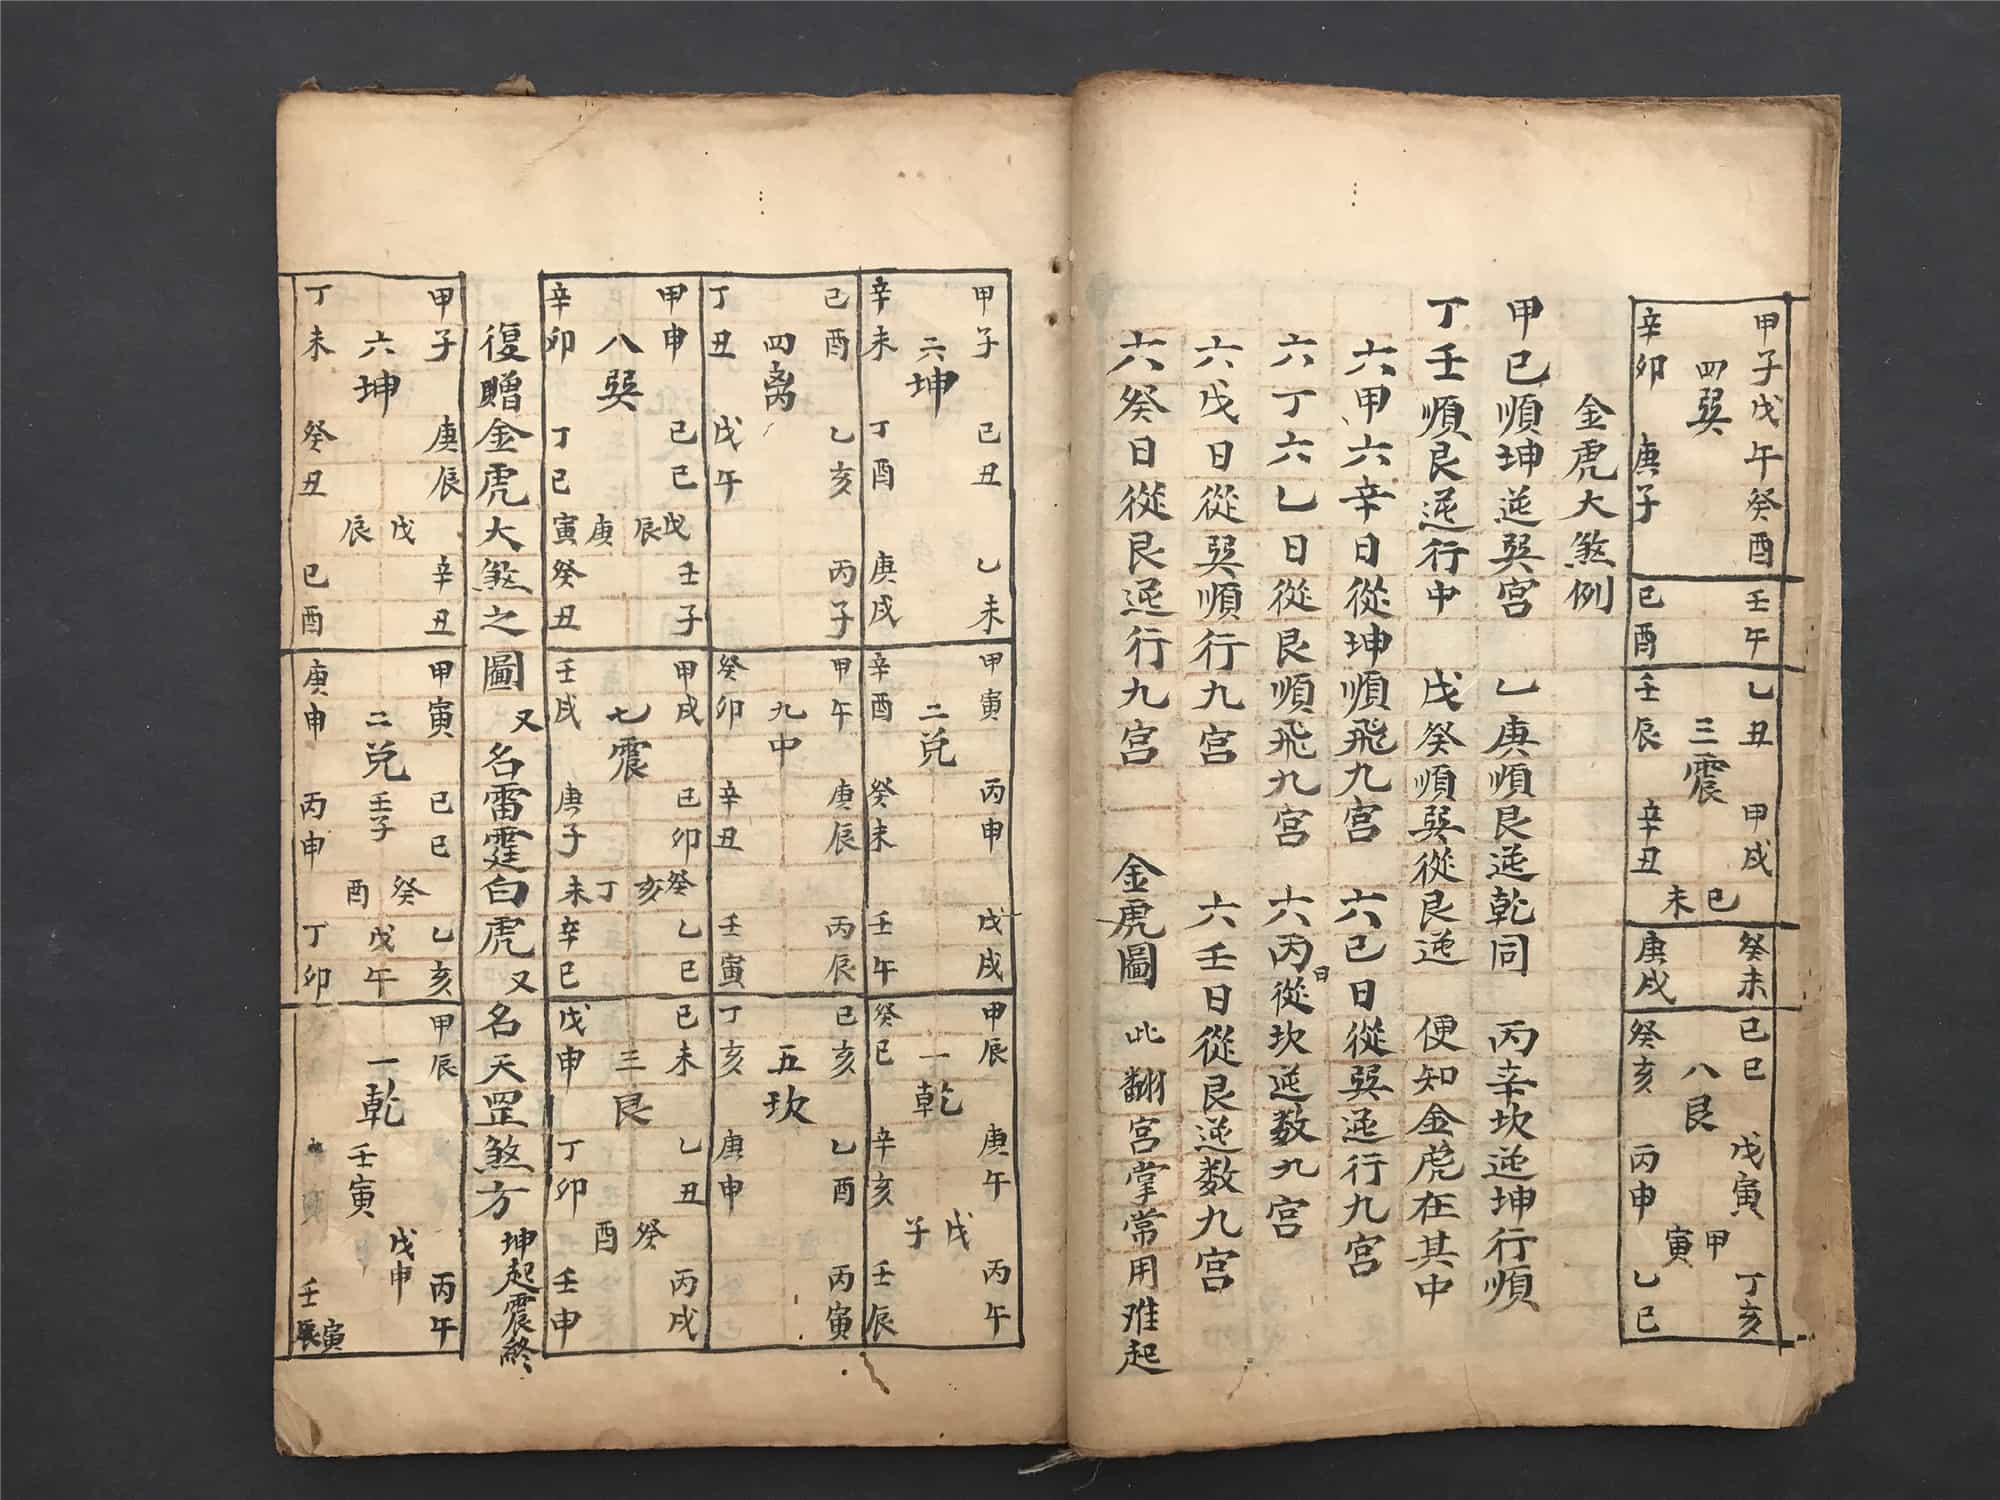 甲子 戊午 癸酉
四巽
辛卯 庚子
壬午
己酉
乙丑 甲戌
三震
己未
壬辰 辛丑
癸未
庚戌
己巳 戊寅 丁亥
八艮
甲寅
癸亥 丙申 乙巳
金虎大煞例
甲己順坤逆巽宮 乙庚順艮逆乾同 丙辛坎逆坤行順
丁壬順艮逆行中 戊癸順巽從艮逆 便知金虎在其中
六甲六辛日從坤順飛九宮 六己日從巽逆行九宮
六丁六乙日從艮順飛九宮 六丙日從坎逆数九宮
六戊日從巽順行九宮 六壬日從艮逆数九宮
六癸日從艮逆行九宮 金虎圖 此翻宮掌常用难起
甲子 己丑 乙未
二坤
辛未 丁酉 庚戌
甲寅 丙申 戊戌
二兌
辛酉 癸未 壬午
甲辰 庚午 丙午
一乾
戊子
癸巳 辛亥 壬辰
己酉 乙亥 丙子
四离
丁丑 戊午
甲午 庚辰 丙辰
九中
癸卯 辛丑 壬寅
己亥 乙酉 丙寅
五坎
丁亥 庚申
甲申 己巳 壬子
八巽
戊辰
庚寅
辛卯 丁巳 癸丑
甲戌 己卯 乙巳
七震
癸亥
丁未
壬戌 庚子 辛巳
己未 乙丑 丙戌
三艮
癸酉
戊申 丁卯 壬申
復贈金虎大煞之圖 又名雷霆白虎 又名天罡煞方 坤起震終
甲子 庚辰 辛丑
六坤
戊辰
丁未 癸丑 己酉
甲寅 己巳 乙亥
二兌
壬子
癸酉
戊午
庚申 丙申 丁卯
甲辰 丙午
一乾
壬寅
戊申
壬寅